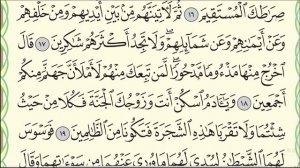 صِرَٰطَكَ ٱلْمُسْتَقِيمَ ١٦ ثُمَّ لَءَاتِيَنَّهُم مِّنۢ بَيْنِ أَيْدِيهِمْ وَمِنْ خَلْفِهِمْ
وَعَنْ أَيْمَٰنِهِمْ وَعَن شَمَآئِلِهِمْ وَلَا تَجِدُ أَكْثَرَهُمْ شَٰكِرِينَ ١٧ قَالَ
ٱخْرُجْ مِنْهَا مَذْءُومًا مَّدْحُورًا لَّمَن تَبِعَكَ مِنْهُمْ لَأَمْلَأَنَّ جَهَنَّمَ مِنكُمْ
أَجْمَعِينَ ١٨ وَيَٰٓـَٔادَمُ ٱسْكُنْ أَنتَ وَزَوْجُكَ ٱلْجَنَّةَ فَكُلَا مِنْ حَيْثُ
شِئْتُمَا وَلَا تَقْرَبَا هَٰذِهِ ٱلشَّجَرَةَ فَتَكُونَا مِنَ ٱلظَّٰلِمِينَ ١٩ فَوَسْوَسَ
لَهُمَا ٱلشَّيْطَٰنُ لِيُبْدِىَ لَهُمَا مَا وُۥرِىَ عَنْهُمَا مِن سَوْءَٰتِهِمَا وَقَالَ